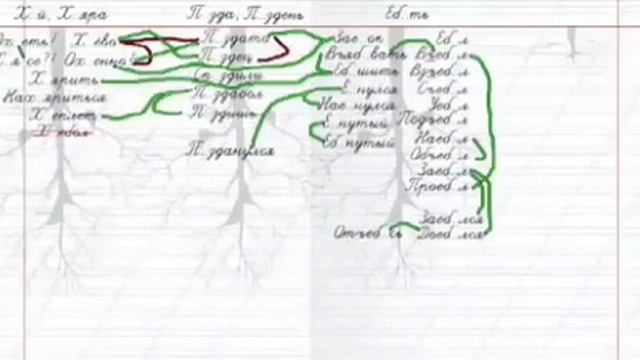 Х.й, Х.яра П.зда, П.здень Еб.ть
Ох.еть! Х.ево П.здато Зае.ок Еб.л
Х.я се?! Ох.енно П.здец Въяб.вать Въеб.л
Х.ярить Сп.здили Еб.шить Взъеб.л
Нах.яриться П.здабол Е.нулся Съеб.л
Х.еплет П.здишь Нае.нулся Уеб.л
Х.ебол Е.нутый Подъеб.л
П.зданулся Еб.нутый Наеб.л
Объеб.л
Заеб.л
Проеб.л
Заеб.лся
Отъеб.сь Доеб.лся